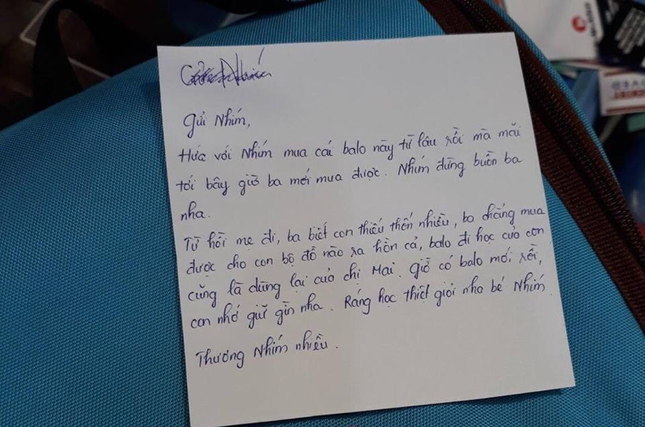 Gửi Nhím,
Hứa với Nhím mua cái balo này từ lâu rồi mà mãi
tới bây giờ ba mới mua được. Nhím đừng buồn ba
nha.
Từ hồi mẹ đi, ba biết con thiếu thốn nhiều, ba chẳng mua
được cho con bộ đồ nào ra hồn cả, balo đi học của con
cũng là dùng lại của chị Mai. Giờ có balo mới rồi,
con nhớ giữ gìn nha. Ráng học thiệt giỏi nha bé Nhím.
Thương Nhím nhiều.